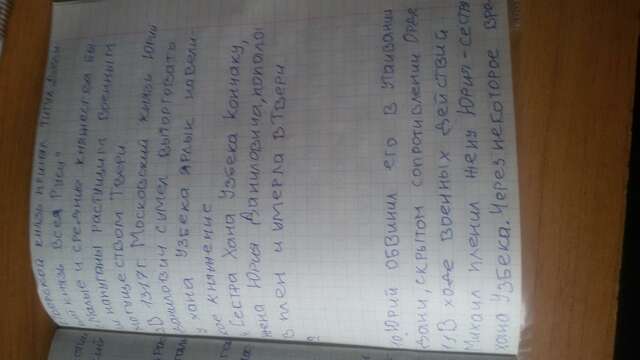 князь принял титул
князь Всея Руси"
малые и средние княжества бы
напуганы растущим военным
могуществом Твери
1317г. Московский князь Юрий
Данилович сумел выторговать
у хана Узбека ярлык на вели-
кое княжение
Сестра Хана Узбека Кончаку,
жена Юрия Даниловича, попала
в плен и умерла в Твери
Юрий обвинил его в утаивании
дани, скрытом сопротивлении Орде
В ходе военных действий
Михаил пленил жену Юрия-сестр
хана Узбека. Через некоторое вре-